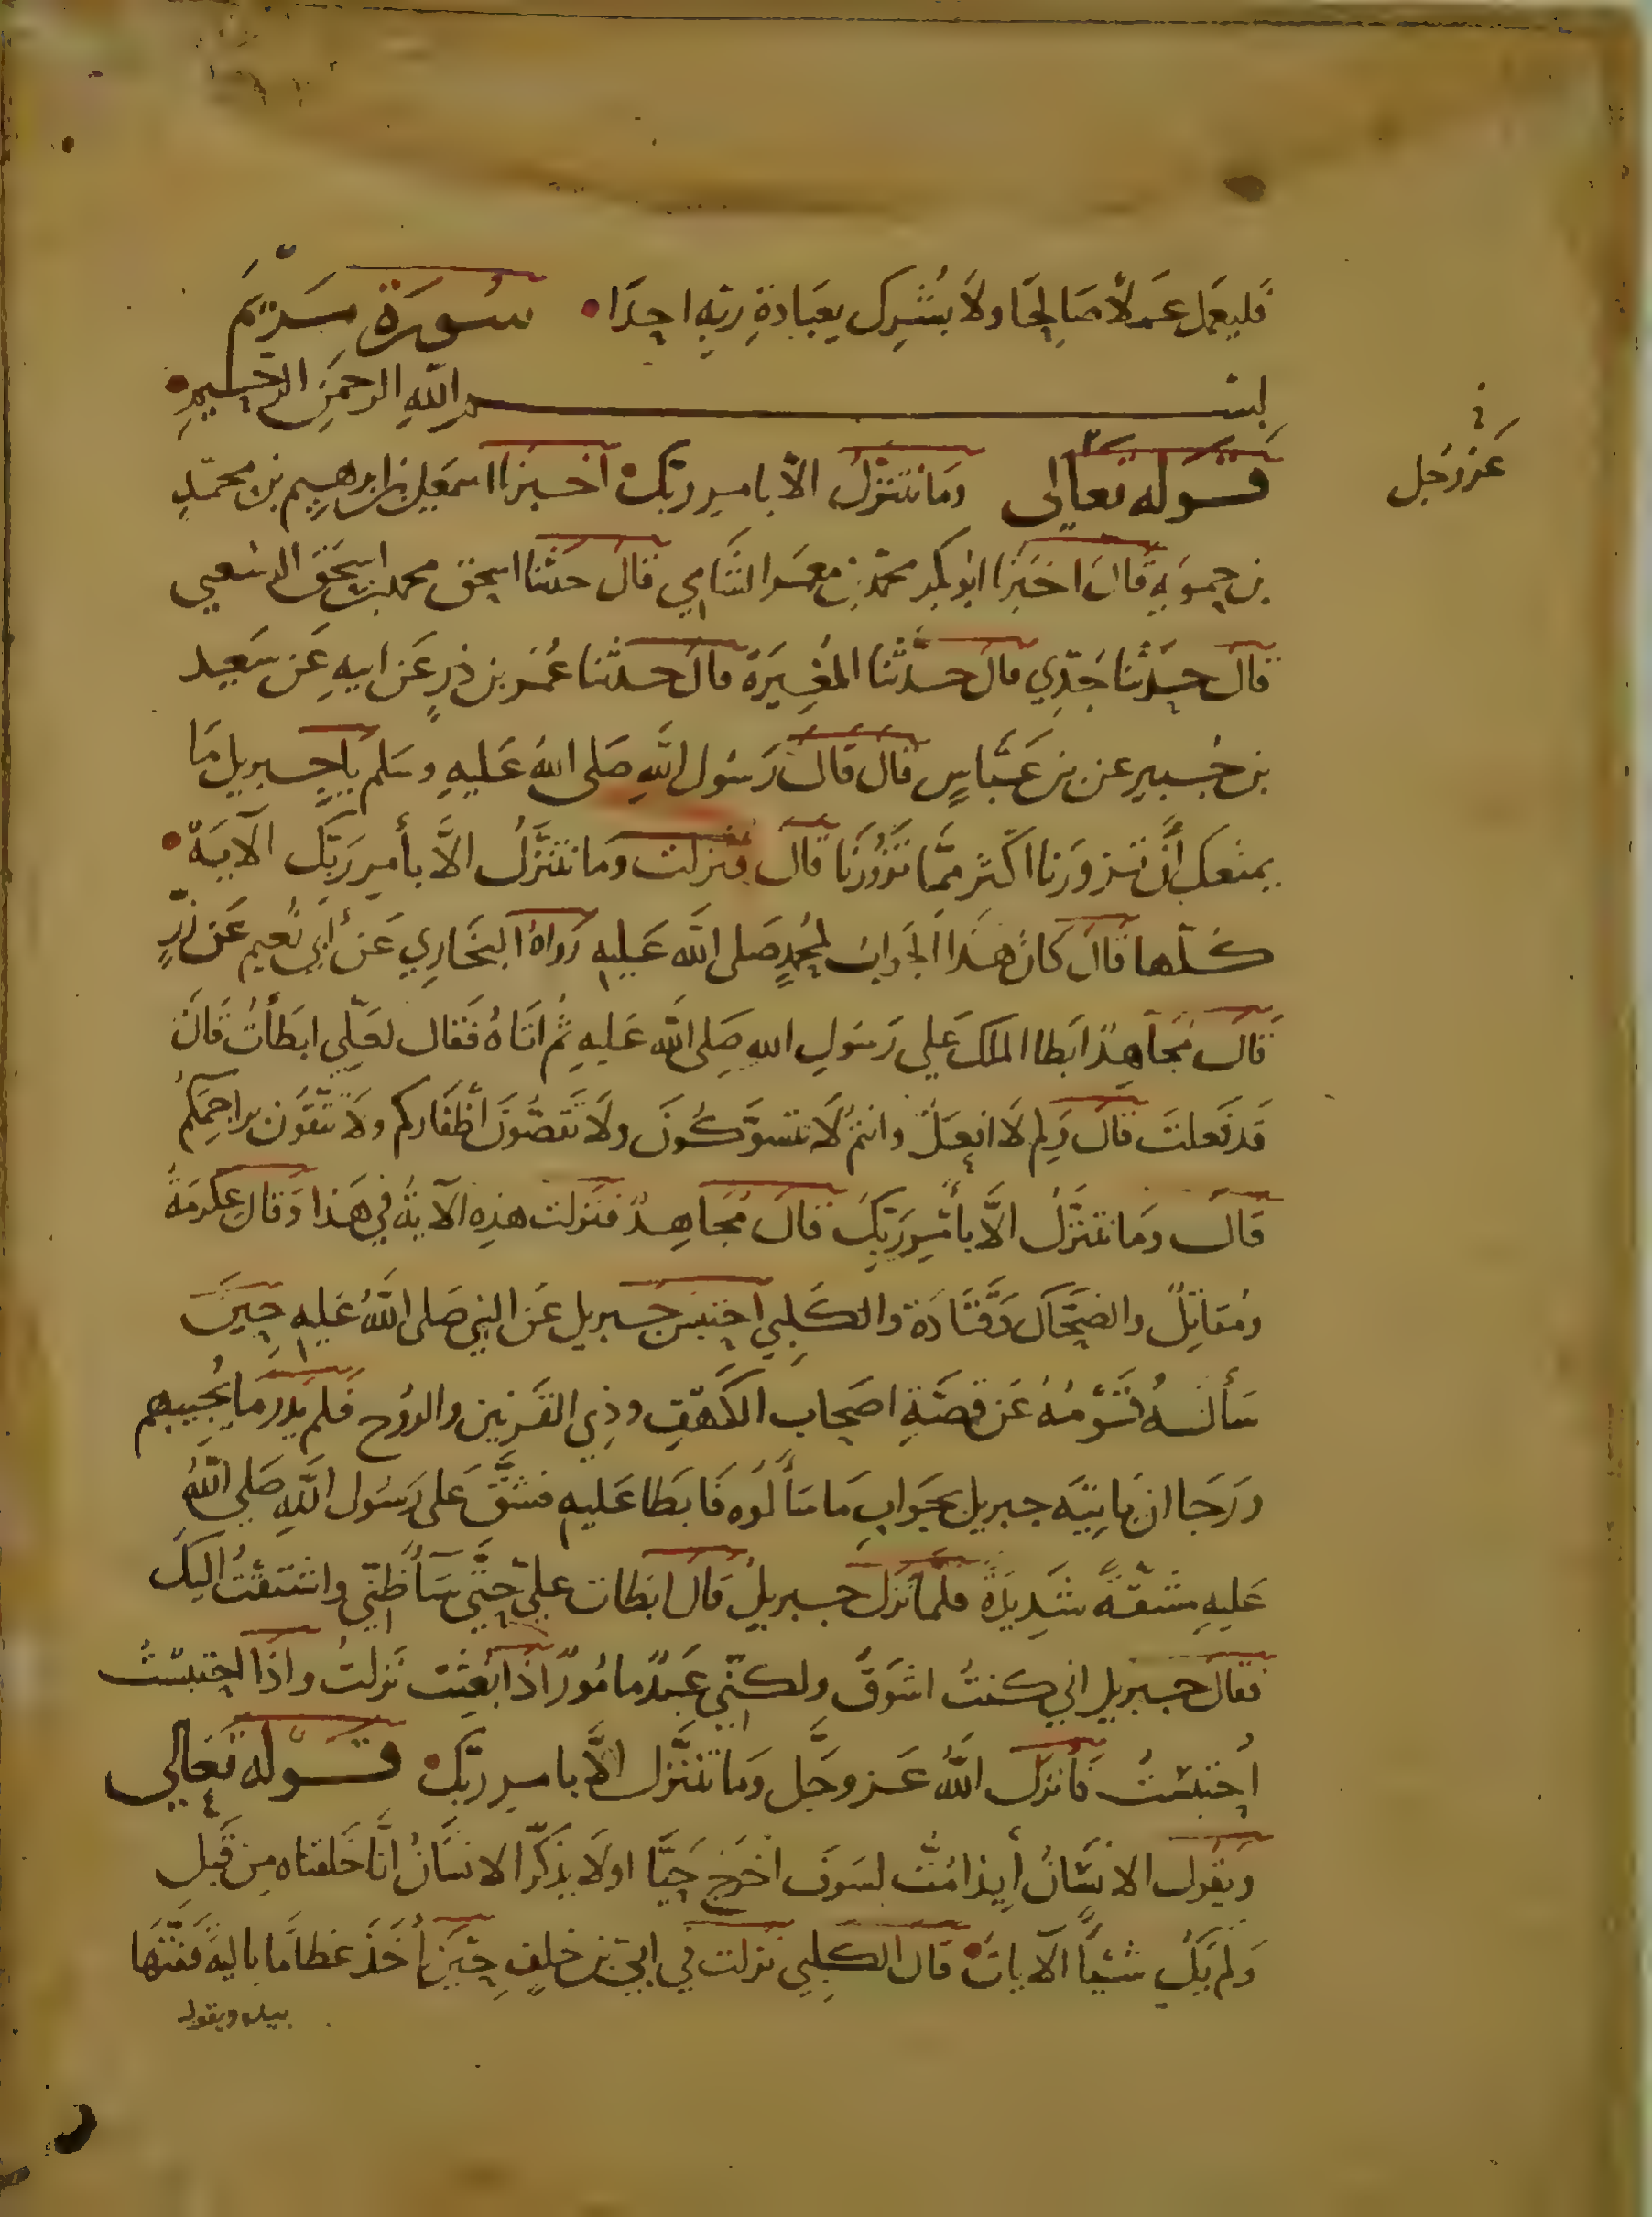 فَليعمَل عَمَلاً صَالِحًا ولاَ يُشْرِك بِعِبَادةِ ربّهِ احِدَا سُورَة مَرْيَمَ
بسم اللّهِ الرحمَنِ الرحيمِ
قَوله تعَالى وَمَا نتنَزلُ الاّ بامرِ ربّكَ اخبَرنا اسمَعيل بن ابرهِيم بن محمّدِ
عَز وَجَل
بن حِمويهِ قَالَ اخبَرنا ابُو بكر محمّد بن معمَر الشَامي قالَ حدثنا اسحق محمد بن اسحَق الرسعني
قَالَ حدثنا جَدّي قالَ حدَّثنا المُغِيرَة قالَ حَدثنا عُمَر بن ذرٍ عَن ابيهِ عَن سَعِيد
بن جُبيرِ عن بن عَبَّاسٍ قالَ قَالَ رَسُول اللَّهِ صَلى اللهُ عَليهِ وسَلم يَا جِبريل مَا
يمنَعكَ أَن تزورَنا اكثر ممَّا تَزُورنَا قَالَ فنزلت ومَا نتنَزَّلُ الاَّ بأمرِ ربّكَ الآيَة
كُلّها قَالَ كَانَ هَذا الجَوابُ لمُحمَّدٍ صَلى اللَّه عَليهِ رَواهُ البخَاري عَن أَبي نُعيم عَن ذرٍّ
قالَ مُجاهِدٌ ابَطا الملك عَلي رَسُولِ اللهِ صَلى اللَّه عَليهِ ثُم اتاهُ فَقال لعَلّي ابطَأتُ قَالَ
قَد فَعلتَ قالَ ولِم لاَ افعَلُ وانتُم لاَ تتسوَّكُونَ ولاَ تَقصُّونَ أظفَاركم ولاَ تنقّونَ براجِمَكُم
قَالَ وَما نتنزَّلُ الاَّ بأَمْرِ رَبّكَ قالَ مُجَاهِدٌ فنزلت هذِه الآيةُ في هَذا وَقَالَ عِكرمَةُ
ومُقاتِلٌ والضحَّاك وقَتَادَة والكَلبِي احتبسَ جبريل عَن النبي صَلى اللَّهُ عَليهِ حِينَ
سَألهُ قَومُهُ عَن قصَّةِ اصحَاب الكَهفِ وذِي القَرنين والرُوح فَلم يَدر مَا يُجِيبهم
ورَجَا ان يَاتِيَه جبريل بجَوابِ مَا سَألُوه فَابطَا عَليهِ فشقَّ عَلى رَسُول اللَّهِ صَلى اللَّهُ
عَليهِ مشَقّةً شَدِيدَةً فلمَّا نزل جبريلُ قَالَ ابطَات عَليّ حتَّى سَآ ظنّي واشتَقتُ اليكَ
فقَالَ جبريل اني كنتُ اشوَقَ ولكنّي عَبدٌ مامُورٌ اذا بُعِثتُ نَزلتُ واذَا احتبستُ
احتبستُ فانزلَ اللَّهُ عَز وجَل ومَا نتنَزَّل الاَّ بامرِ ربّكَ قَوله تعَالي
وَيقُول الانسَانُ أيذا مُتُّ لسَوفَ اخرَج حَيًّا اولاَ يذكّر الانسَانُ انَّا خَلقناه مِن قَبل
وَلم يَكُ شيئًا الآيات قَالَ الكَلبي نزلت في ابيّ بن خلفٍ حِين أخذَ عظاَما باليةً ففتّهَا
بيده ويقول